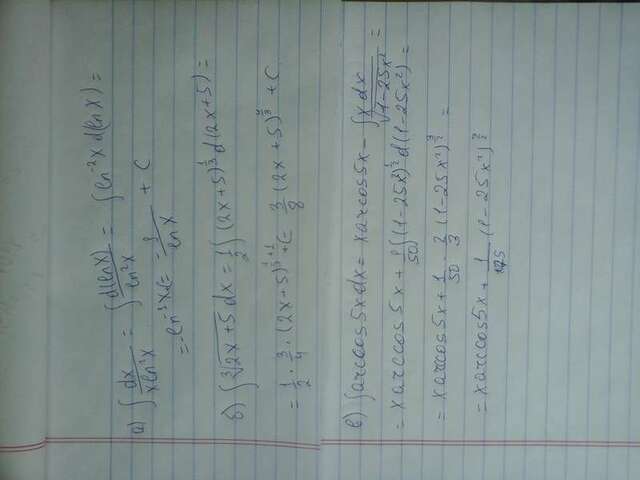 а) ∫ dx/(x ln²x) = ∫ d(ln x)/ln²x = ∫ ln⁻²x d(ln x) =
= -ln⁻¹x + C = -1/ln x + C
б) ∫ ∛(2x+5) dx = 1/2 ∫ (2x+5)^(1/3) d(2x+5) =
= 1/2 · 3/4 · (2x+5)^(1/3+1) + C = 3/8 (2x+5)^(4/3) + C
в) ∫ arccos5x dx = x arccos5x - ∫ x dx/√(1-25x²) =
= x arccos5x + 1/50 ∫ (1-25x²)^(1/2) d(1-25x²) =
= x arccos5x + 1/50 · 2/3 (1-25x²)^(3/2) =
= x arccos5x + 1/75 (1-25x²)^(3/2)